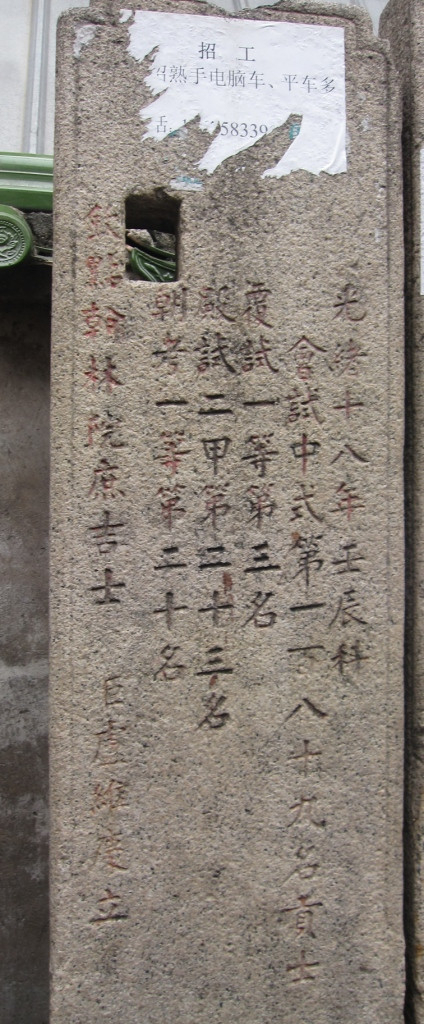 招 工
熟手电脑车、平车多
58339
光緒十八年壬辰科
會試中式第一百八十九名貢士
覆試一等第三名
殿試二甲第二十三名
朝考一等第二十名
欽點翰林院庶吉士 臣盧維慶立